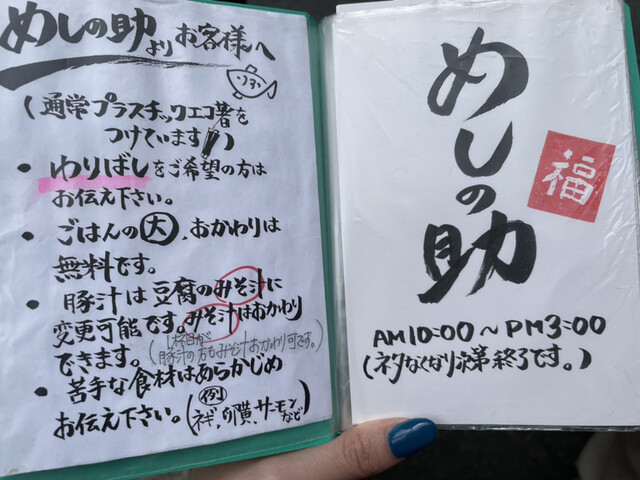 めしの助よりお客様へ
(通常プラスチックエコ箸を
つけています!!)
・わりばしをご希望の方は
お伝え下さい。
・ごはんの大、おかわりは
無料です。
・豚汁は豆腐のみそ汁に
変更可能です。みそ汁はおかわり
できます。(1杯目が
豚汁の方もみそ汁おかわり可です。)
・苦手な食材はあらかじめ
お伝え下さい。(例
ネギ、卵黄、サーモン
など)
めしの助
福
AM10:00〜PM3:00
(ネタなくなり次第終了です。)